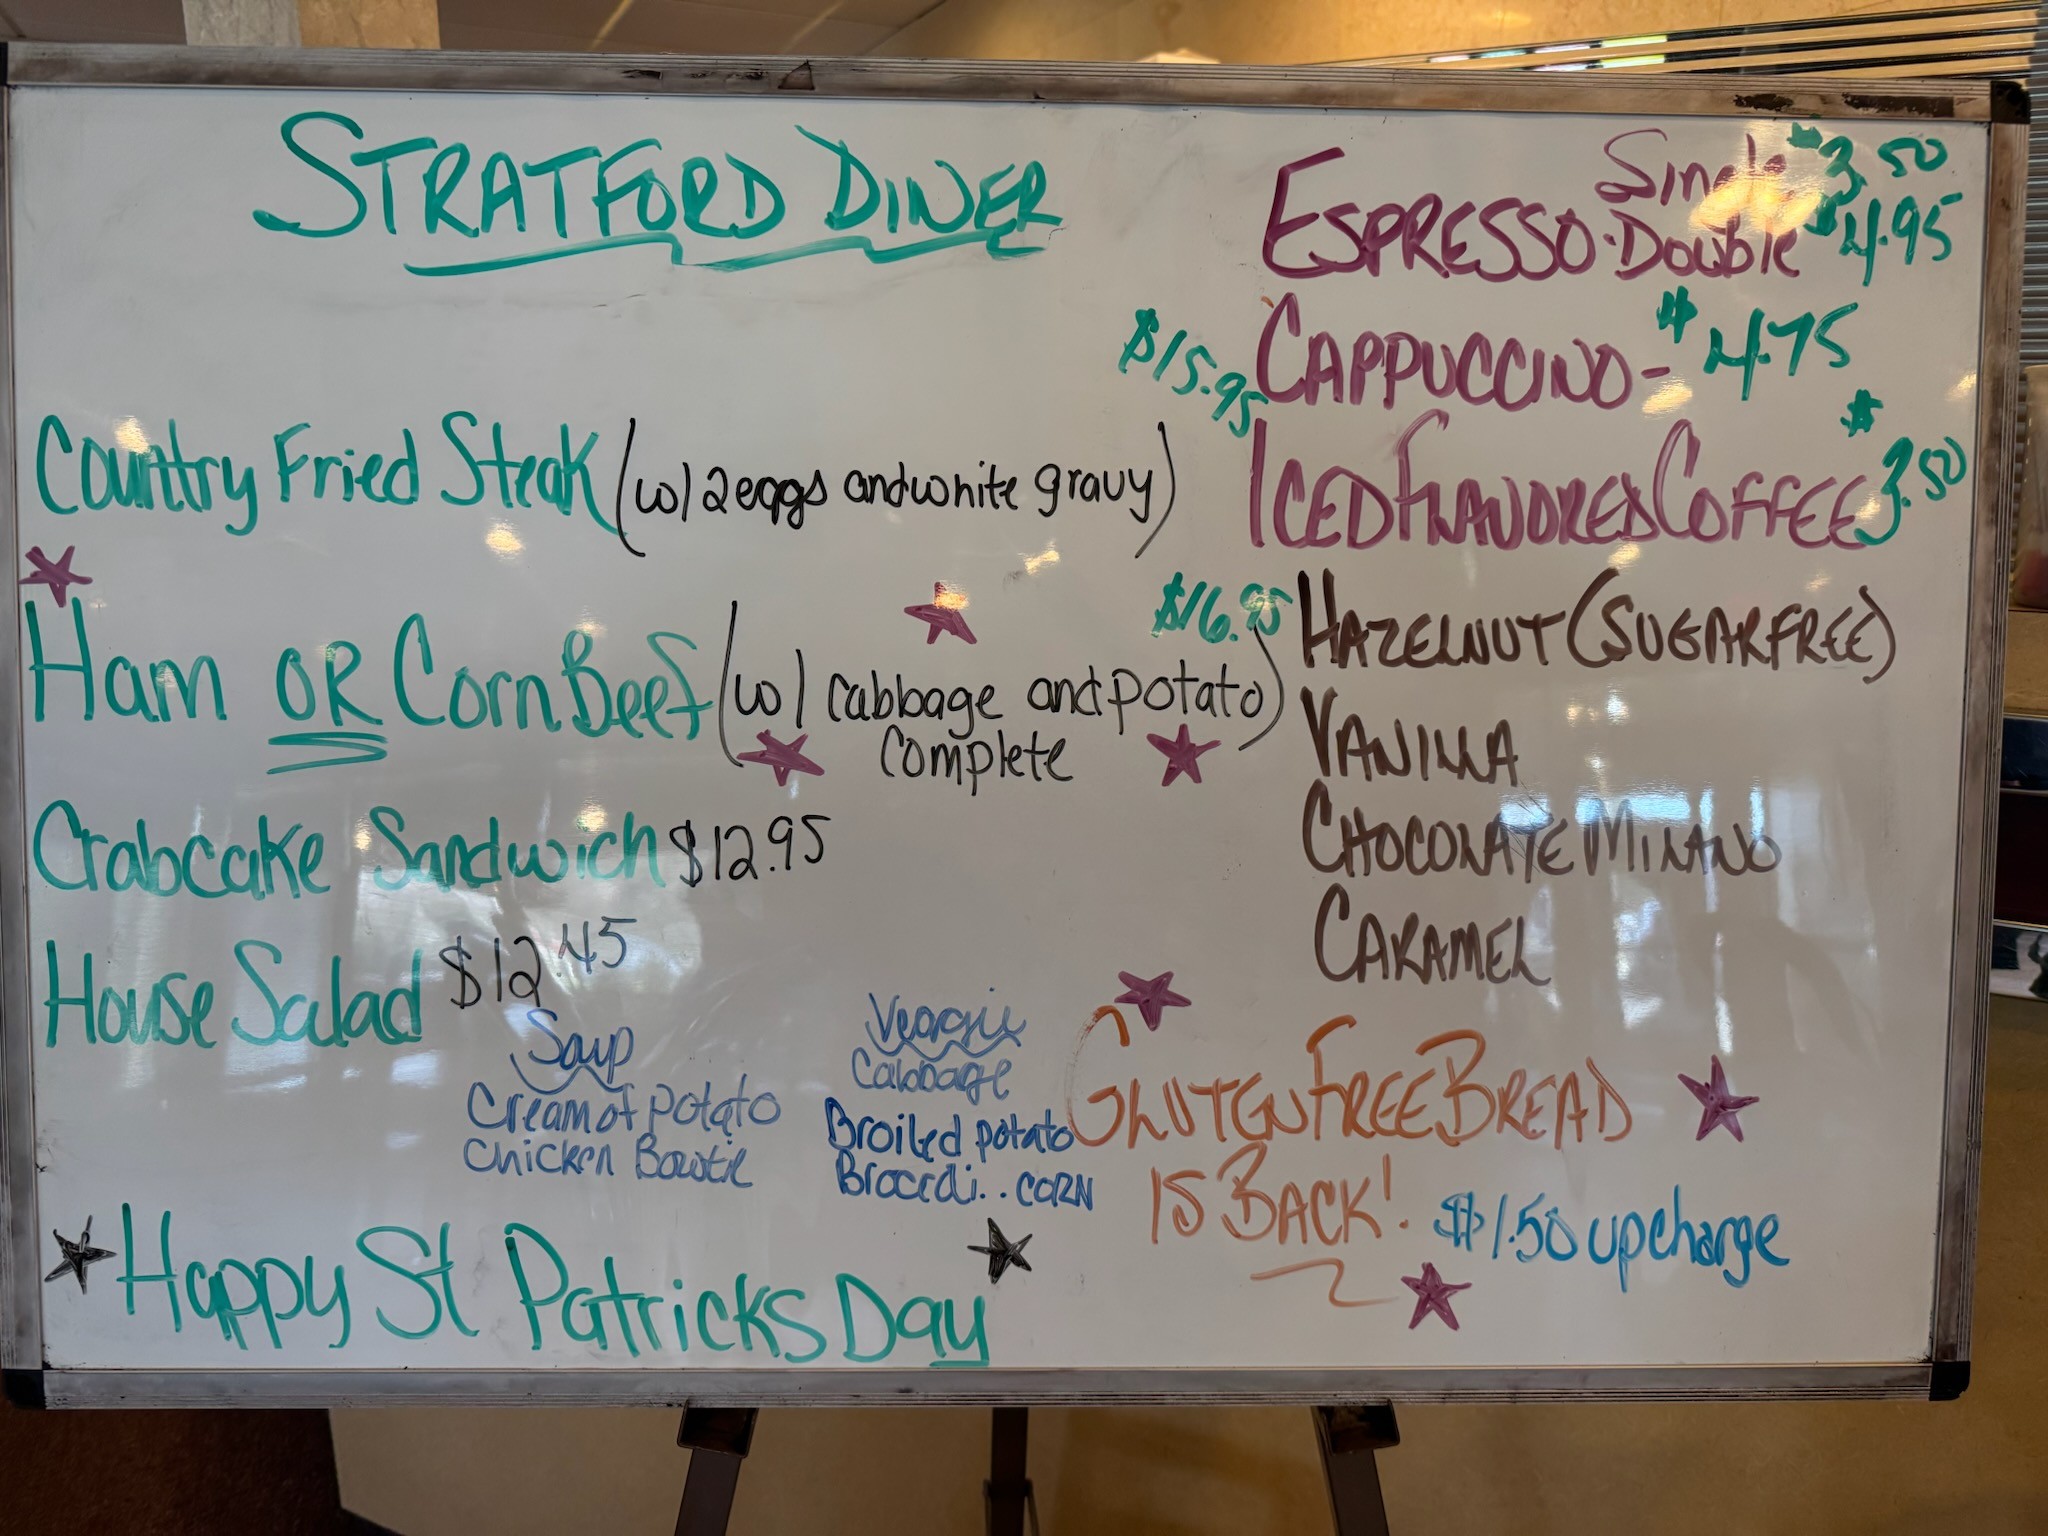 STRATFORD DINER
$15.95
Country Fried Steak (w/ 2 eggs and white gravy)
$16.95
Ham OR Corn Beef (w/ cabbage and potato)
complete
Crabcake Sandwich $12.95
House Salad $12.45
Soup
Cream of potato
Chicken Bowtie
Veggie
Cabbage
Broiled potato
Broccoli.. CORN
Happy St Patricks Day
Single $3.50
ESPRESSO. Double $4.95
CAPPUCCINO - $4.75
ICED FLAVORED COFFEE $3.50
HAZELNUT (SUGAR FREE)
VANILLA
CHOCOLATE MILANO
CARAMEL
GLUTEN FREE BREAD
IS BACK! $1.50 upcharge